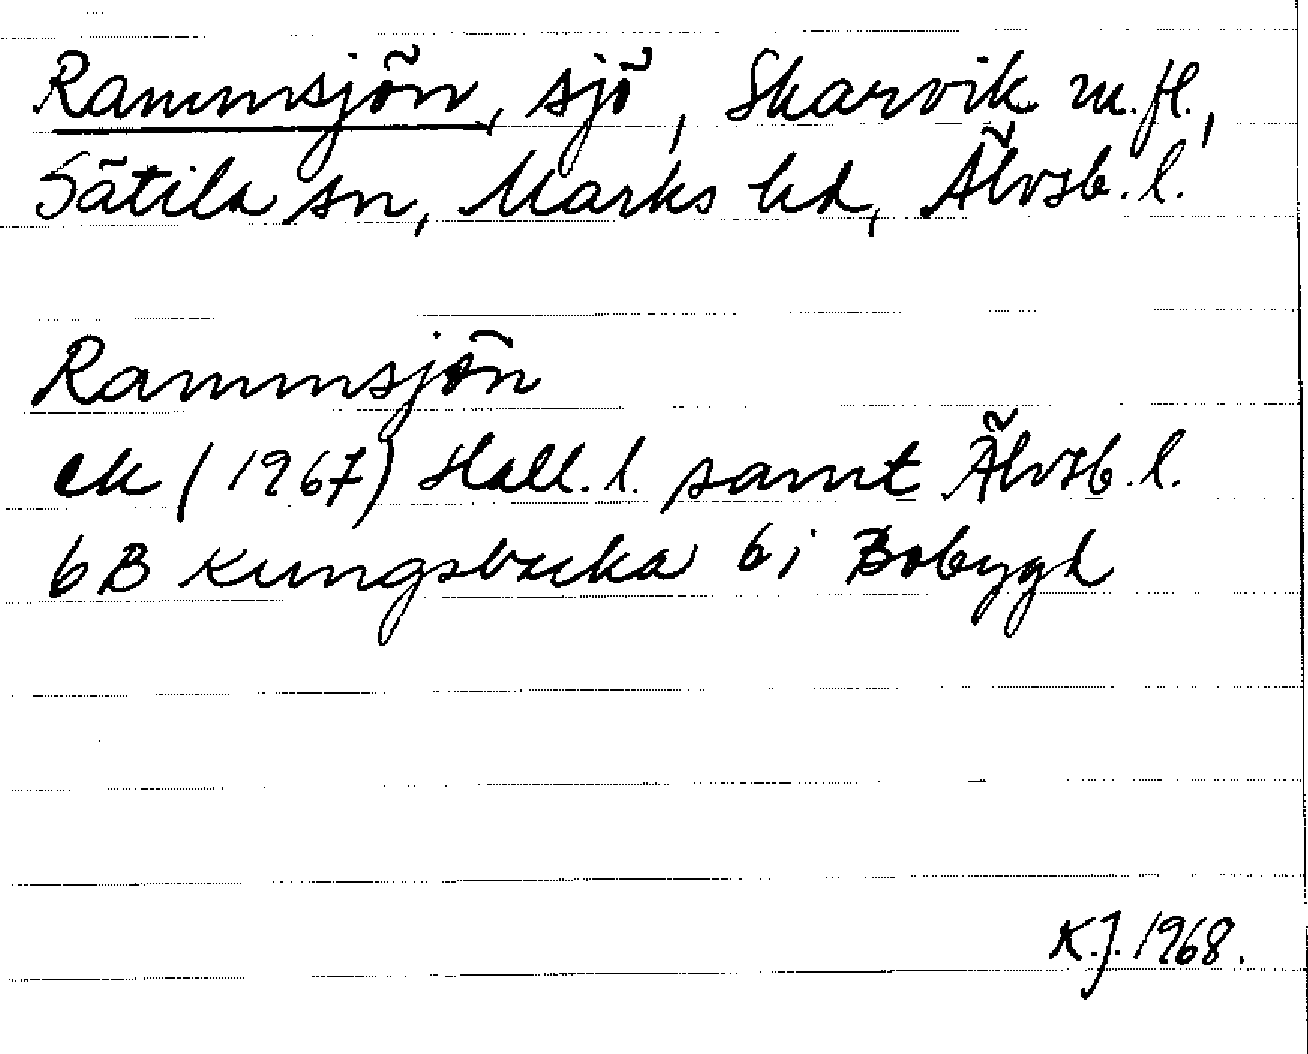 Rammsjön, sjö, Skarvik m.fl.,
Sätila sn, Marks hd, Älvsb. l.
Rammsjön
ek (1967) Hall. l. samt Älvsb. l.
6B Kungsbacka 6i Bobygd
K.J. 1968.